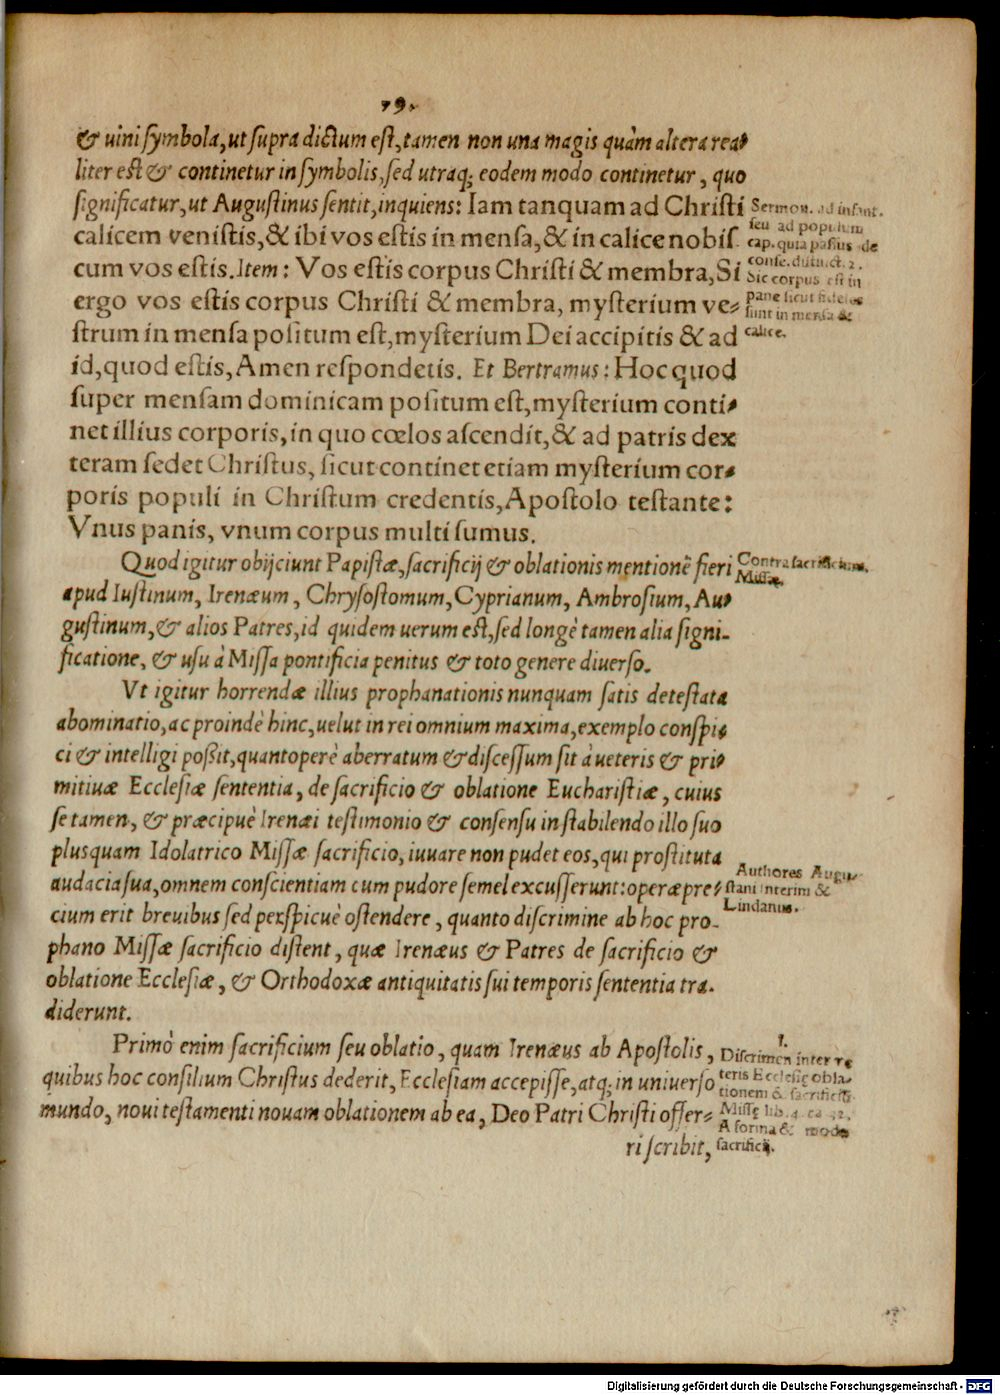 79.
& uini symbola, ut supra dictum est, tamen non una magis quàm altera rea-
liter est & continetur in symbolis, sed utraq; eodem modo continetur, quo
significatur, ut Augustinus sentit, inquiens: Iam tanquam ad Christi
calicem venistis, & ibi vos estis in mensa, & in calice nobis
cum vos estis. Item: Vos estis corpus Christi & membra, Si
ergo vos estis corpus Christi & membra, mysterium ve-
strum in mensa positum est, mysterium Dei accipitis & ad
id, quod estis, Amen respondetis. Et Bertramus: Hoc quod
super mensam dominicam positum est, mysterium conti-
net illius corporis, in quo cœlos ascendit, & ad patris dex
teram sedet Christus, sicut continet etiam mysterium cor-
poris populi in Christum credentis, Apostolo testante:
Vnus panis, vnum corpus multi sumus.
Sermon. ad infant.
seu ad populum
cap. quia passus de
conse. distinct. 2.
Sic corpus est in
pane sicut fideles
sunt in mensa &
calice.
Quod igitur obijciunt Papistæ, sacrificij & oblationis mentionē fieri
apud Iustinum, Irenæum, Chrysostomum, Cyprianum, Ambrosium, Au-
gustinum, & alios Patres, id quidem uerum est, sed longè tamen alia signi-
ficatione, & usu à Missa pontificia penitus & toto genere diuerso.
Contra sacrificium
Missæ.
Vt igitur horrendæ illius prophanationis nunquam satis detestata
abominatio, ac proindè hinc, uelut in rei omnium maxima, exemplo conspi-
ci & intelligi poßit, quantoperè aberratum & discessum sit à ueteris & pri-
mitiuæ Ecclesiæ sententia, de sacrificio & oblatione Eucharistiæ, cuius
se tamen, & præcipuè Irenæi testimonio & consensu in stabilendo illo suo
plusquam Idolatrico Missæ sacrificio, iuuare non pudet eos, qui prostituta
audacia sua, omnem conscientiam cum pudore semel excusserunt: operæpre-
cium erit breuibus sed perspicuè ostendere, quanto discrimine ab hoc pro-
phano Missæ sacrificio distent, quæ Irenæus & Patres de sacrificio &
oblatione Ecclesiæ, & Orthodoxæ antiquitatis sui temporis sententia tra-
diderunt.
Authores Augu-
stani Interim &
Lindanus.
Primò enim sacrificium seu oblatio, quam Irenæus ab Apostolis,
quibus hoc consilium Christus dederit, Ecclesiam accepisse, atq; in uniuerso
mundo, noui testamenti nouam oblationem ab ea, Deo Patri Christi offer-
ri scribit,
1.
Discrimen inter ve
teris Ecclesię obla-
tionem & sacrificiū
Missę lib. 4. ca. 32.
A forma & modo
sacrificij.
Digitalisierung gefördert durch die Deutsche Forschungsgemeinschaft - DFG